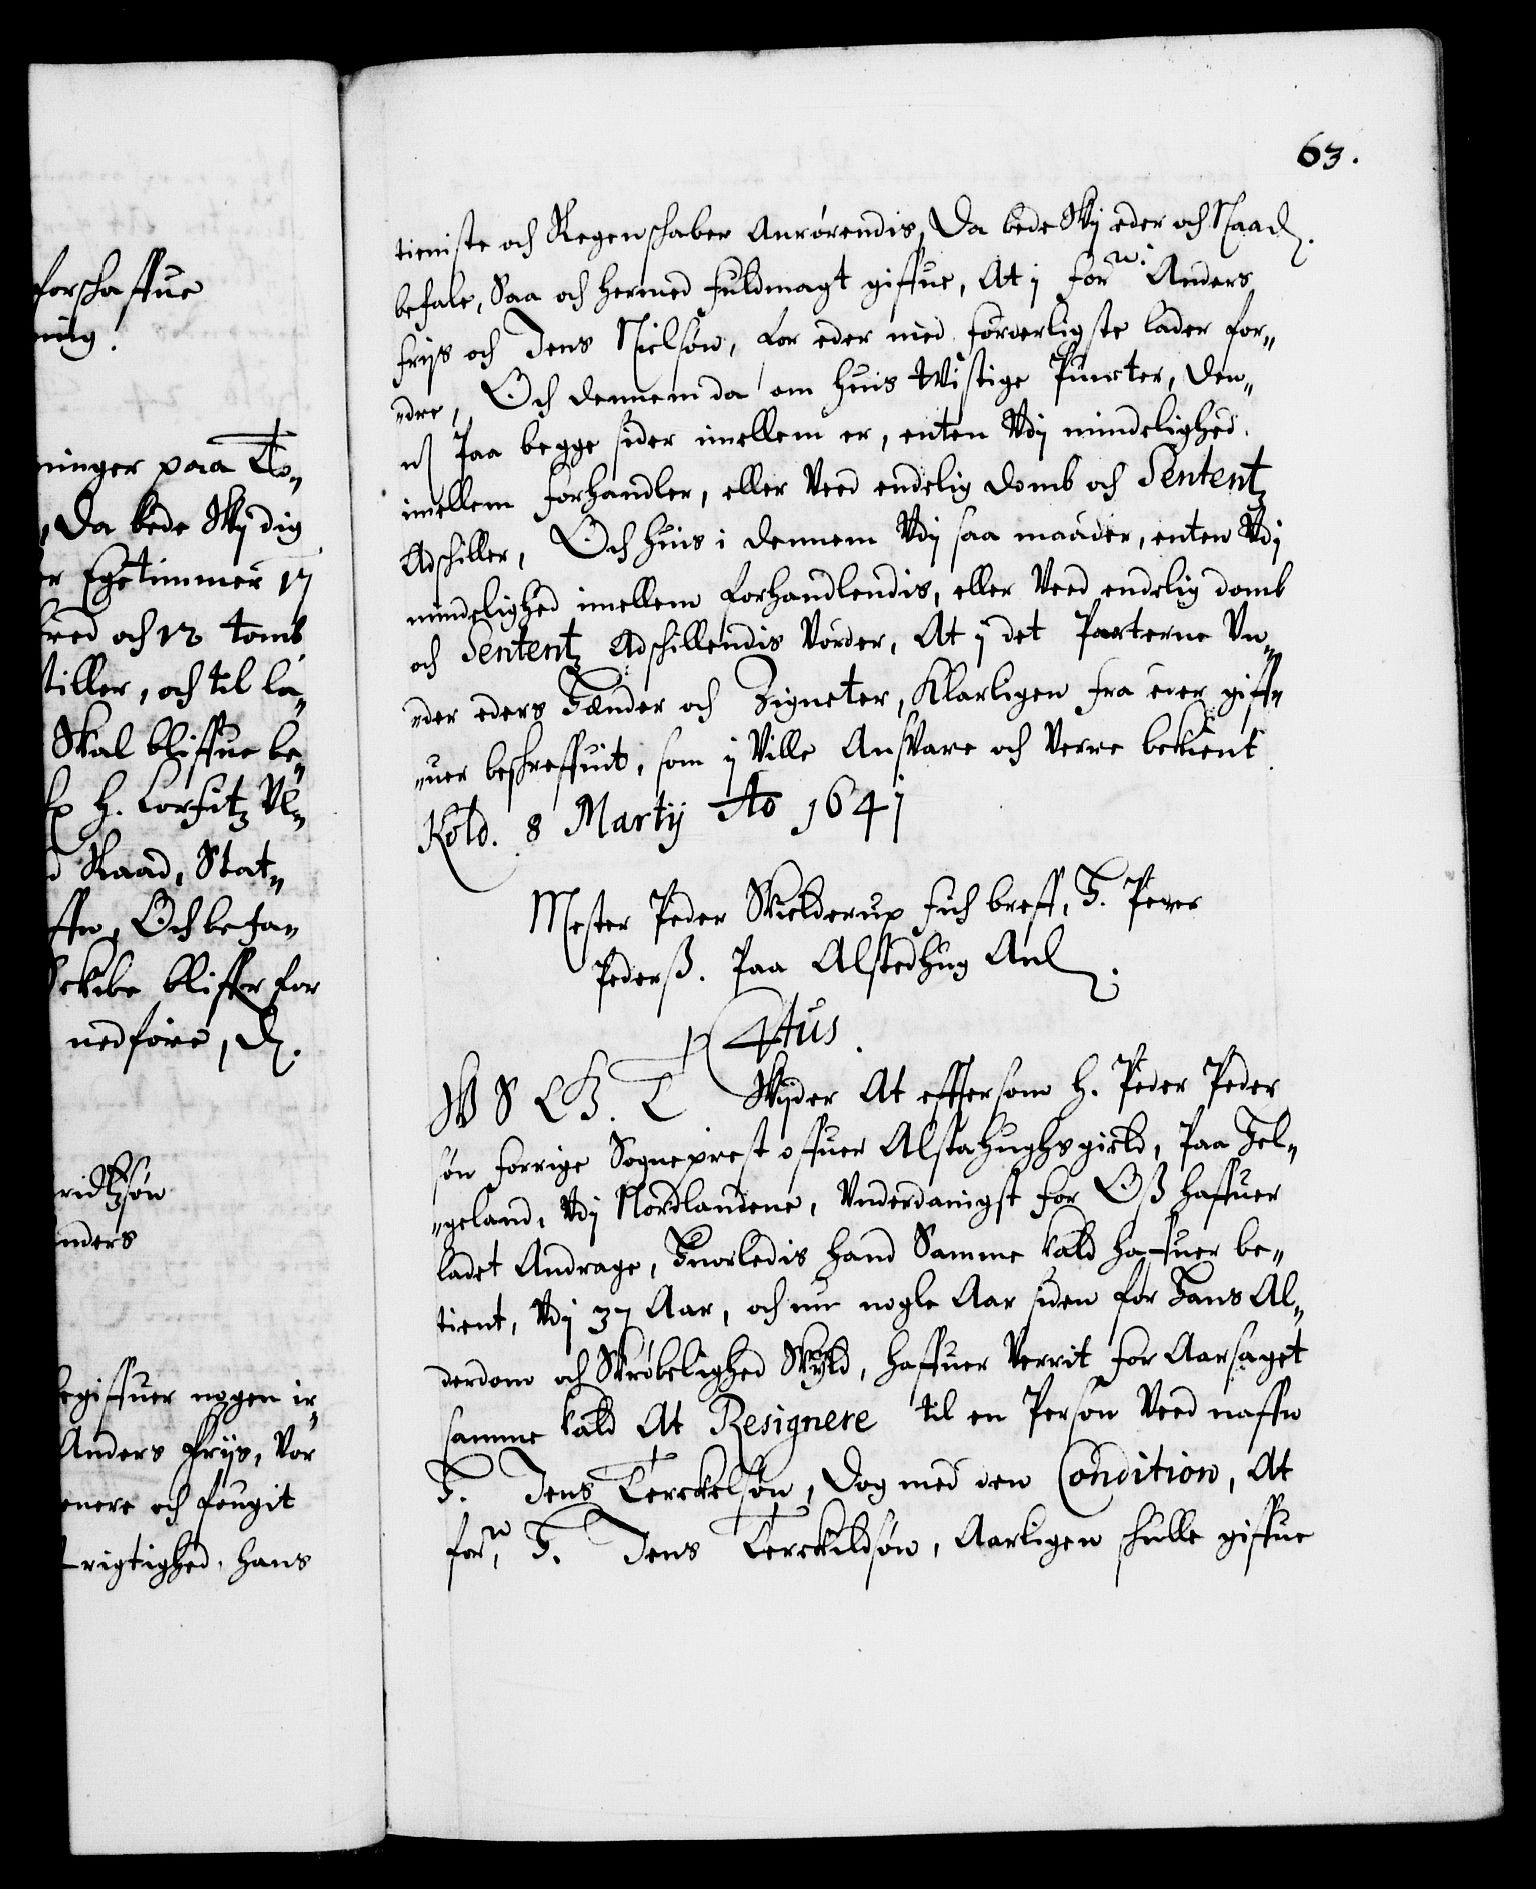 forschaffue
ning.
ninger paa Tv¬
, Da bede Wy dig
er Egetimmer 17
bred och 12 tomb
tiller, och til la¬
Skal bliffue be¬
H. Corfitz Vl¬
d Raad, Stat¬
ffn, Och befa¬
bliffer for
nedføre, D.
ridtzsøn
nders
begiffuer nogen ir¬
Anders Friis, Vor
enere och fougit
rigtighed, hans
63.
tieniste och Regenschaber Anrørendis, Da bede Wy eder och Naad.
befale, Saa och hermed fuldmagt giffue, At i forn: Anders
friis och Jens Nielsøn, for eder med forderligste lader for¬
dre, Och dennem da om huis twistige Puncter, den¬
nem Paa begge sider imellem er, enten Vdj mindelighed
imellem forhandler, eller Veed endelig domb och Sententz
Adschiller, Och huis i dennem Vdj saa maader, enten Vdj
mindelighed imellem forhandlendis, eller Veed endelig domb
och Sententz Adschillendis Vorder, At i det Parterne Vn¬
der eders Hænder och Zigneter, Klarligen fra eder giff¬
uer beschreffuit, som i Ville Ansvare och Verre bekient
Kold. 8 Martij Ao 1641
Mester Peder Skielderup fich breff, H. Peder
Pederß. Paa Alstedhug Anl.
C4tus
W S G. T Wider At effersom H. Peder Peder
søn forrige Sogneprest offuer Alstahughs gield, Paa Hel¬
geland, Vdj Nordlandene, Vnderdanigst for Oß haffuer
ladet Andrage, Huorledis hand Samme kald haffuer be¬
tient, Vdj 37 Aar, och nu nogle Aar siden for Hans Al¬
derdom och Skrøbelighed Skyld, haffuer Verrit for Aarsaget
samme kald At Resignere til en Person Veed naffn
H. Jens Terckelsøn, Dog med den Condition, At
forn, H. Jens Terckildsøn, Aarligen schulle giffue